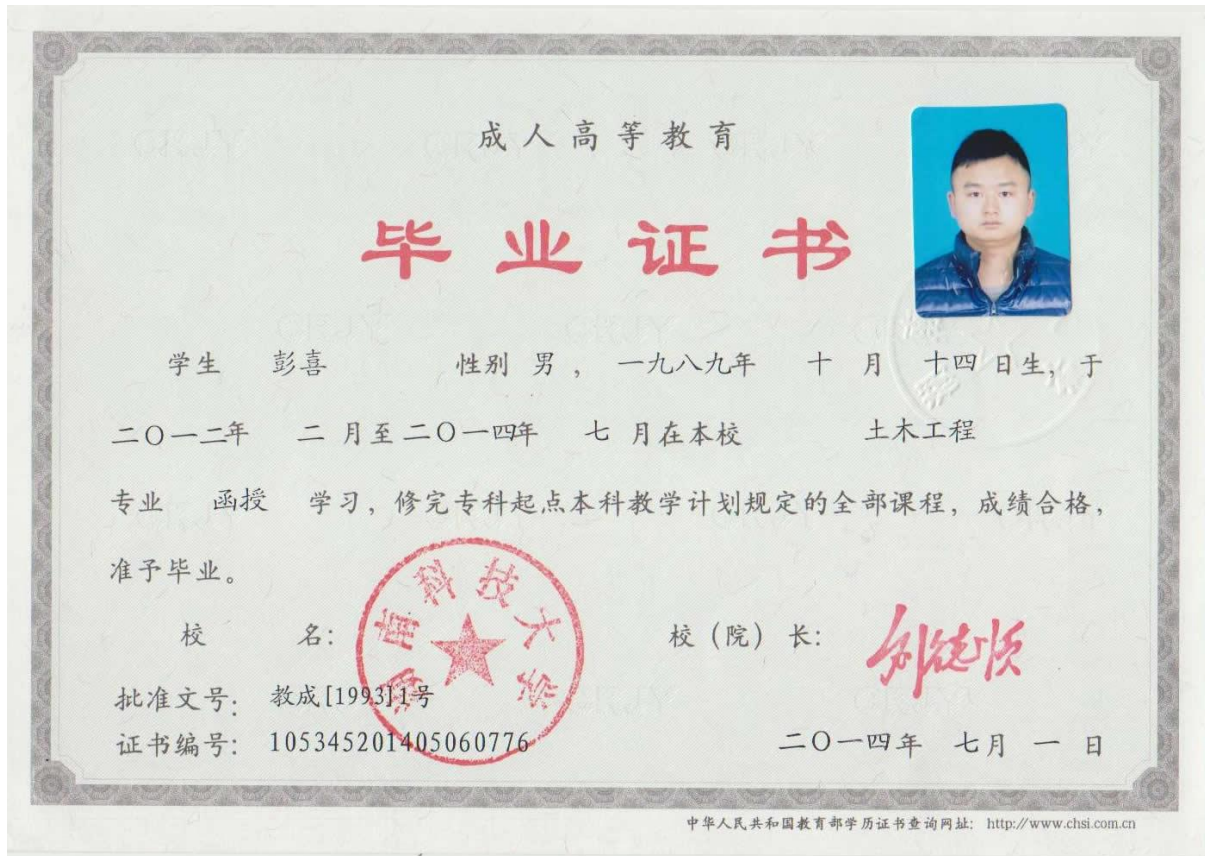 成人高等教育
毕业证书
学生 彭喜 性别 男 ， 一九八九年 十 月 十四 日生，于
二〇一二年 二 月至二〇一四年 七 月在本校 土木工程
专业 函授 学习，修完专科起点本科教学计划规定的全部课程，成绩合格，
准予毕业。
校 名： 校（院）长：
湖南科技大学
刘德顺
批准文号： 教成[1993]1号
证书编号： 105345201405060776 二〇一四年 七月 一 日
中华人民共和国教育部学历证书查询网址： http://www.chsi.com.cn